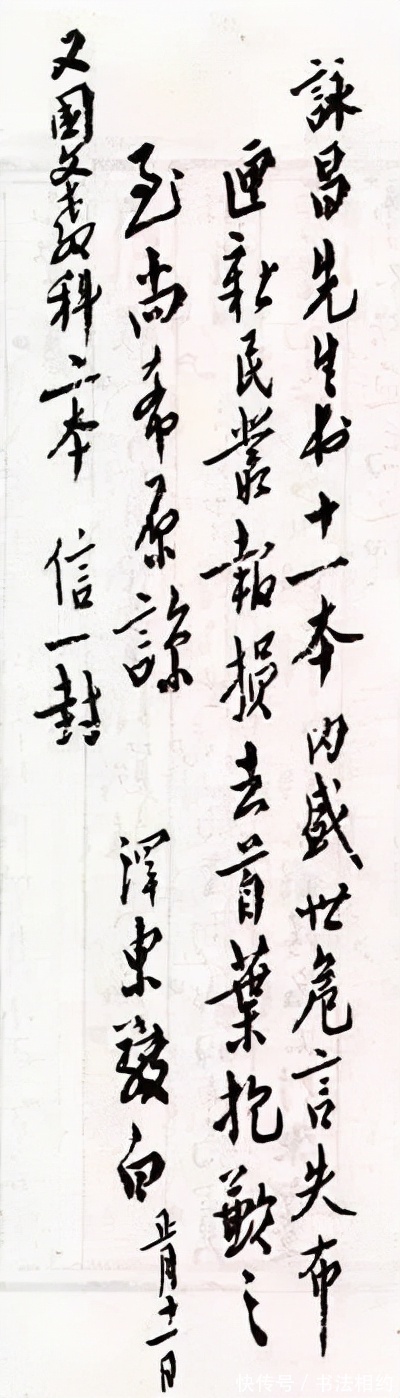 詠昌先生书十一本内盛世危言失布
匣新民叢報損去首葉抱歉之
至尚希原諒
澤東敬白正月十一日
又國文教科二本 信一封
快传号/书法相约